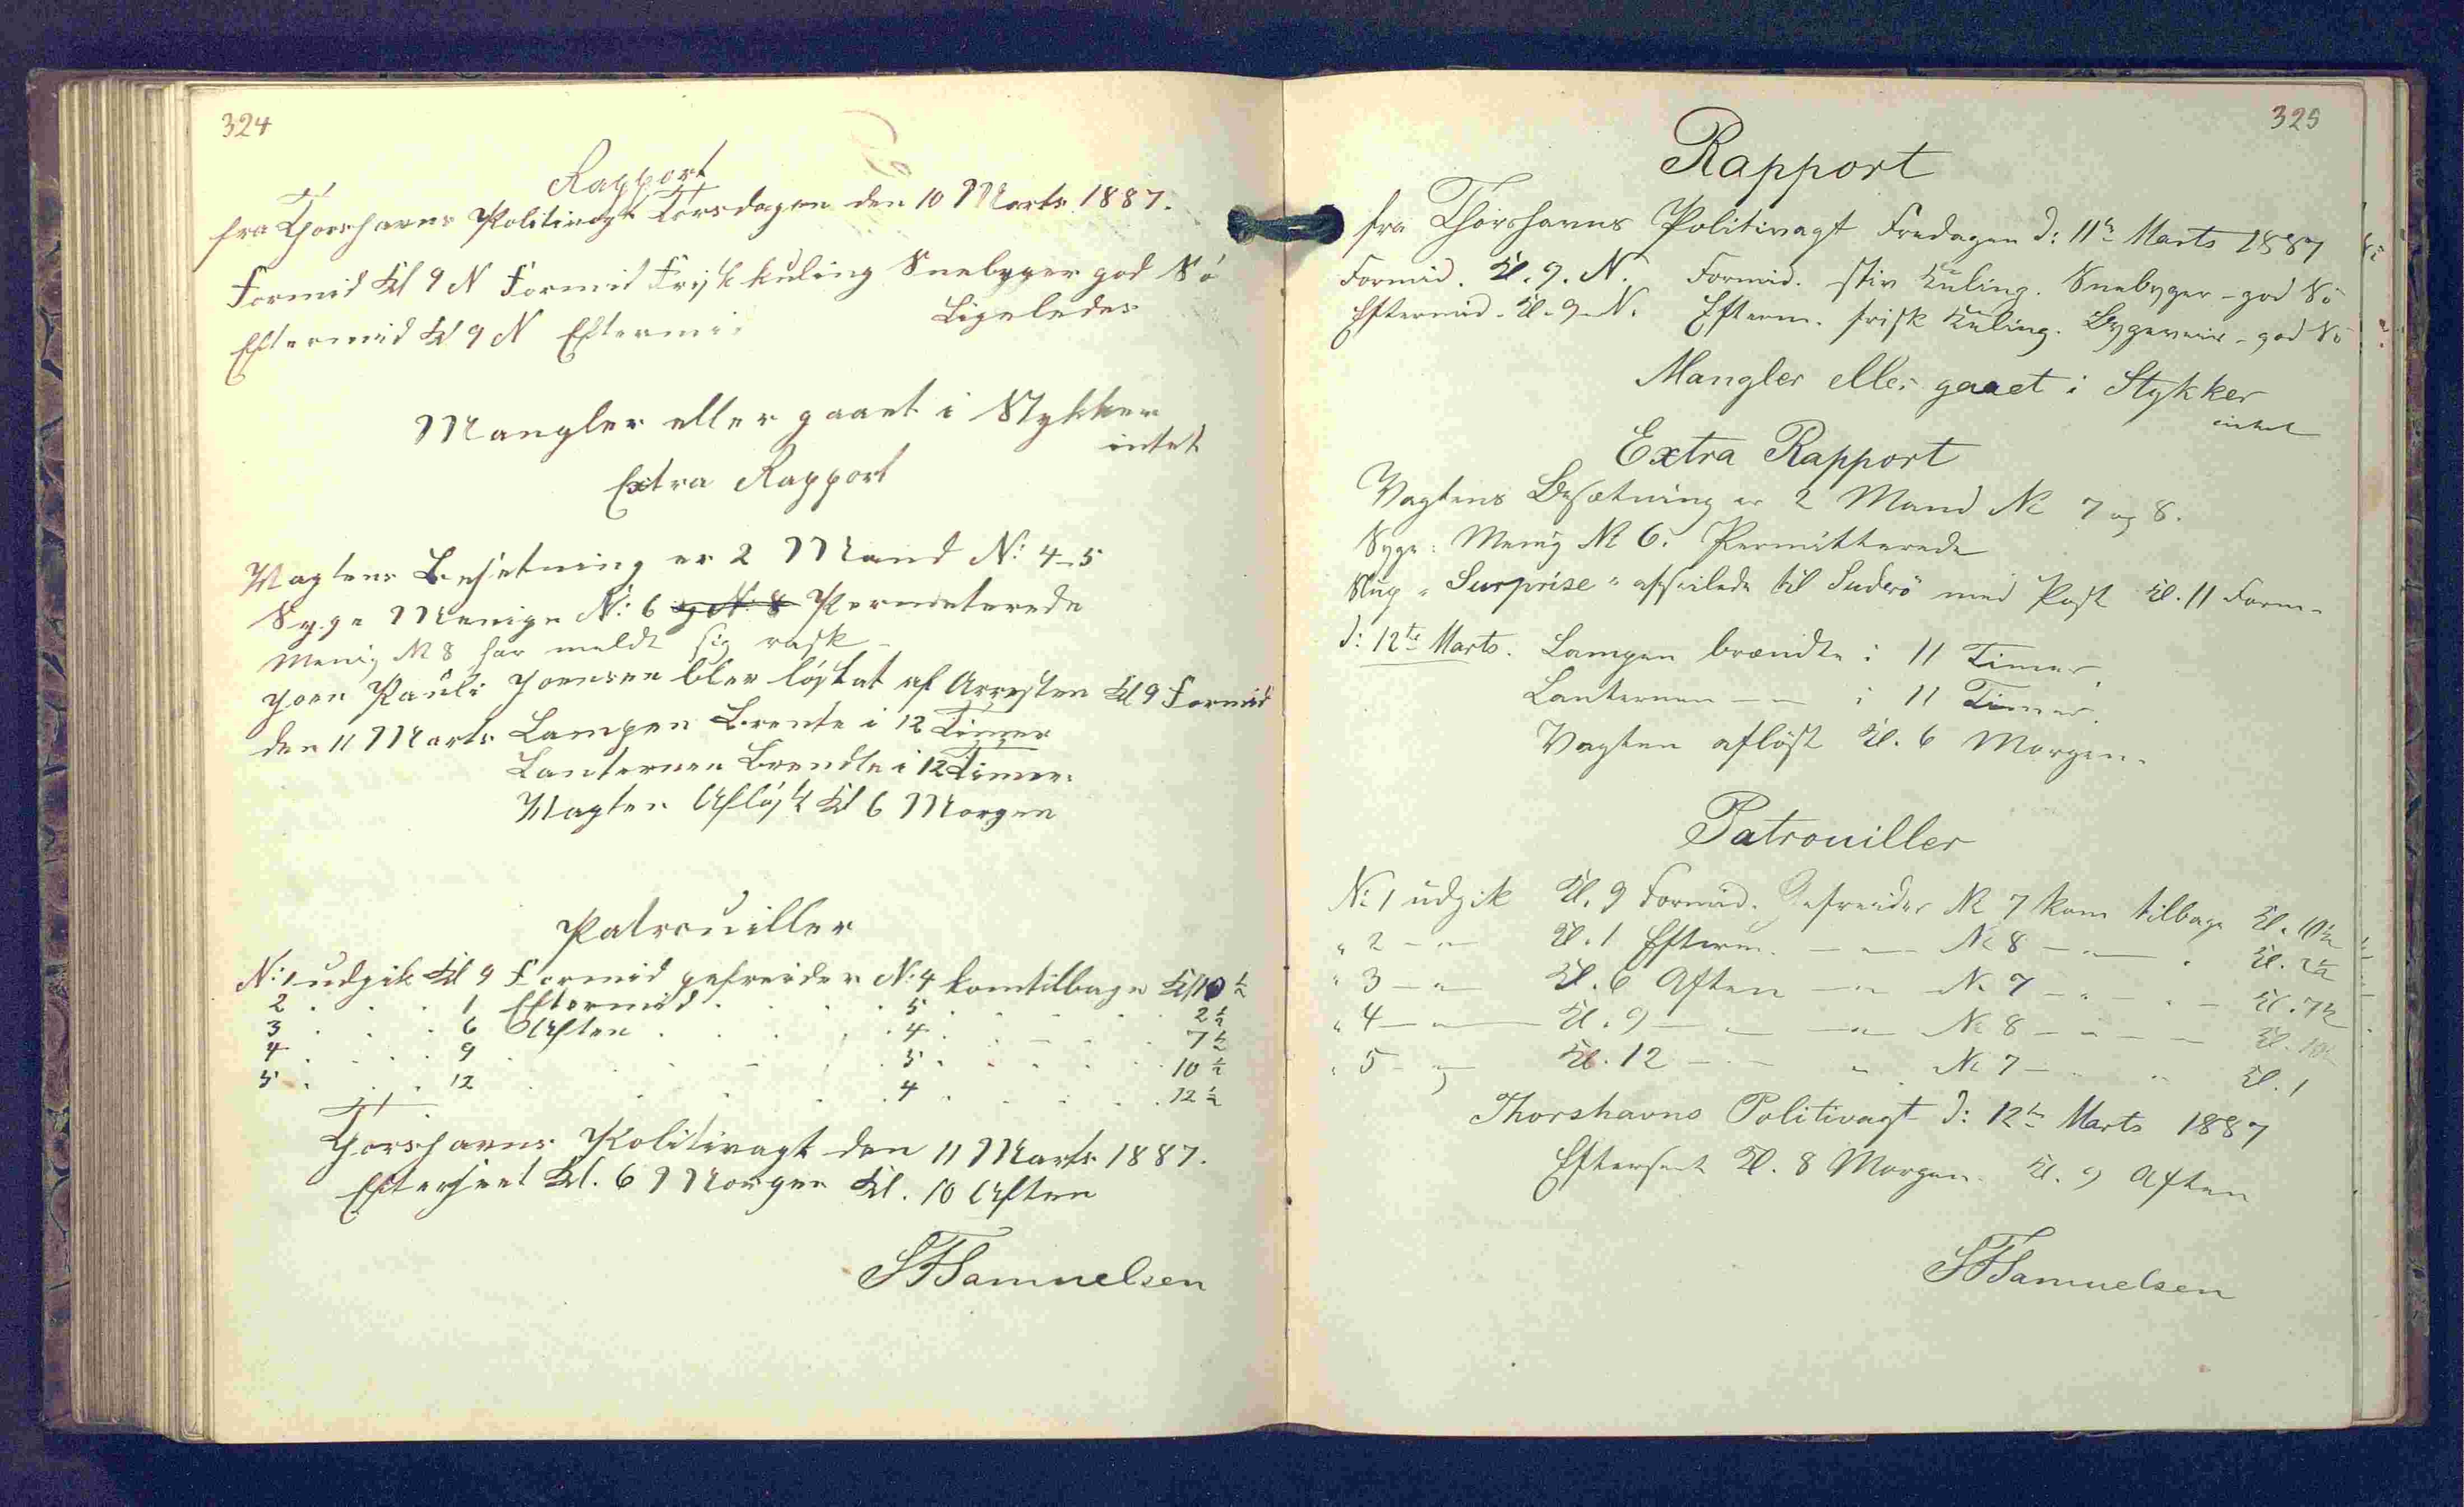 324
Rapport
fra Thorshavns Politivagt Torsdagen den 10 Marts 1887.
Formid Kl 9 N Formid Frisk kuling Snebyger god Sö
Eftermid Kl 9 N Eftermi. Ligeledes
Mangler eller gaaet i Stykker
intet
Extra Rapport
Vagtens Besetning er 2 Mand N: 4-5
Syge Menige N: 6 og N: 8 Permeterede
Menig No 8 har meldt sig rask -
Joen Pauli Joensen blev løslat af Arresten Kl 9 Formid
den 11 Marts Lampen Brente i 12 Timer
Lanternen Brendte i 12 Timer.
Vagten Aflöst Kl 6 Morgen
Patrouiller
N: 1 udgik Kl 9 Formid gefreider N: 4 kom tilbage Kl 10 ½
2 . . . 1 Eftermid . . . . 5 . . . . . 2 ½
3 . . . 6 Aften . . . . 4 . . . . . 7 ½
4 . . . . 9 . . . . . 5 . . . . . 10 ½
5 . . . 12 . . . . . 4 . . . . . 12 ½
Thorshavns Politivagt den 11 Marts 1887.
Efterseet Kl. 6 Morgen Kl. 10 Aften
SFSamuelsen
325
Rapport
fra Thorshavns Politivagt Fredagen d: 11te Marts 1887
Formid. Kl. 9. N. Formid. stiv Kuling. Snebyger - god Sö
Eftermid. Kl. 9. N. Efterm. frisk Kuling. Bygeveir - god Sö
Mangler eller gaaet i Stykker
intet
Extra Rapport
Vagtens Besætning er 2 Mand No 7 og 8.
Syge: Menig No 6. Permitterede
Slup "Surprise" afseilede til Suderö med Post Kl. 11 Form.
d: 12te Marts. Lampen brændte i 11 Timer.
Lanternen - - i 11 Timer.
Vagten aflöst Kl. 6 Morgen.
Patrouiller
No 1 udgik Kl. 9 Formid. Gefreider No 7 kom tilbage Kl. 10½
" 2 - " - Kl. 1 Efterm. - " - No 8 - " - " Kl. 2½
" 3 - " - Kl. 6 Aften - " - No 7 - " - " - Kl. 7½
" 4 - " - Kl. 9 - " - " - No 8 - " - " - Kl. 10½
" 5 - " - Kl. 12 - " - " No 7 - " " Kl. 1
Thorshavns Politivagt d: 12te Marts 1887
Efterseet Kl. 8 Morgen. Kl. 9 Aften
SFSamuelsen